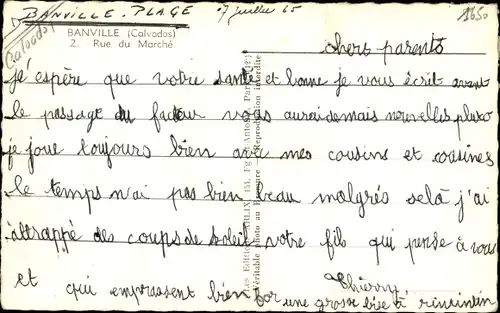 BANVILLE. PLAGE 7 juillet 65
Calvados
BANVILLE (Calvados)
2. Rue du Marché
chers parents
j'éspère que votre santé et bonne je vous écrit avant
le passage du facteur vous aurai demais nouvelles pluto
je joue toujours bien avec mes cousins et cousines
le temps n'ai pas bien beau malgrés selà j'ai
àttrappé des coups de soleil votre fils qui pense à vous
et qui embrassent bien for
Thierry
une grosse bise à rinrintin
Les Editions
151,
Véritable photo au
Reproduction interdite